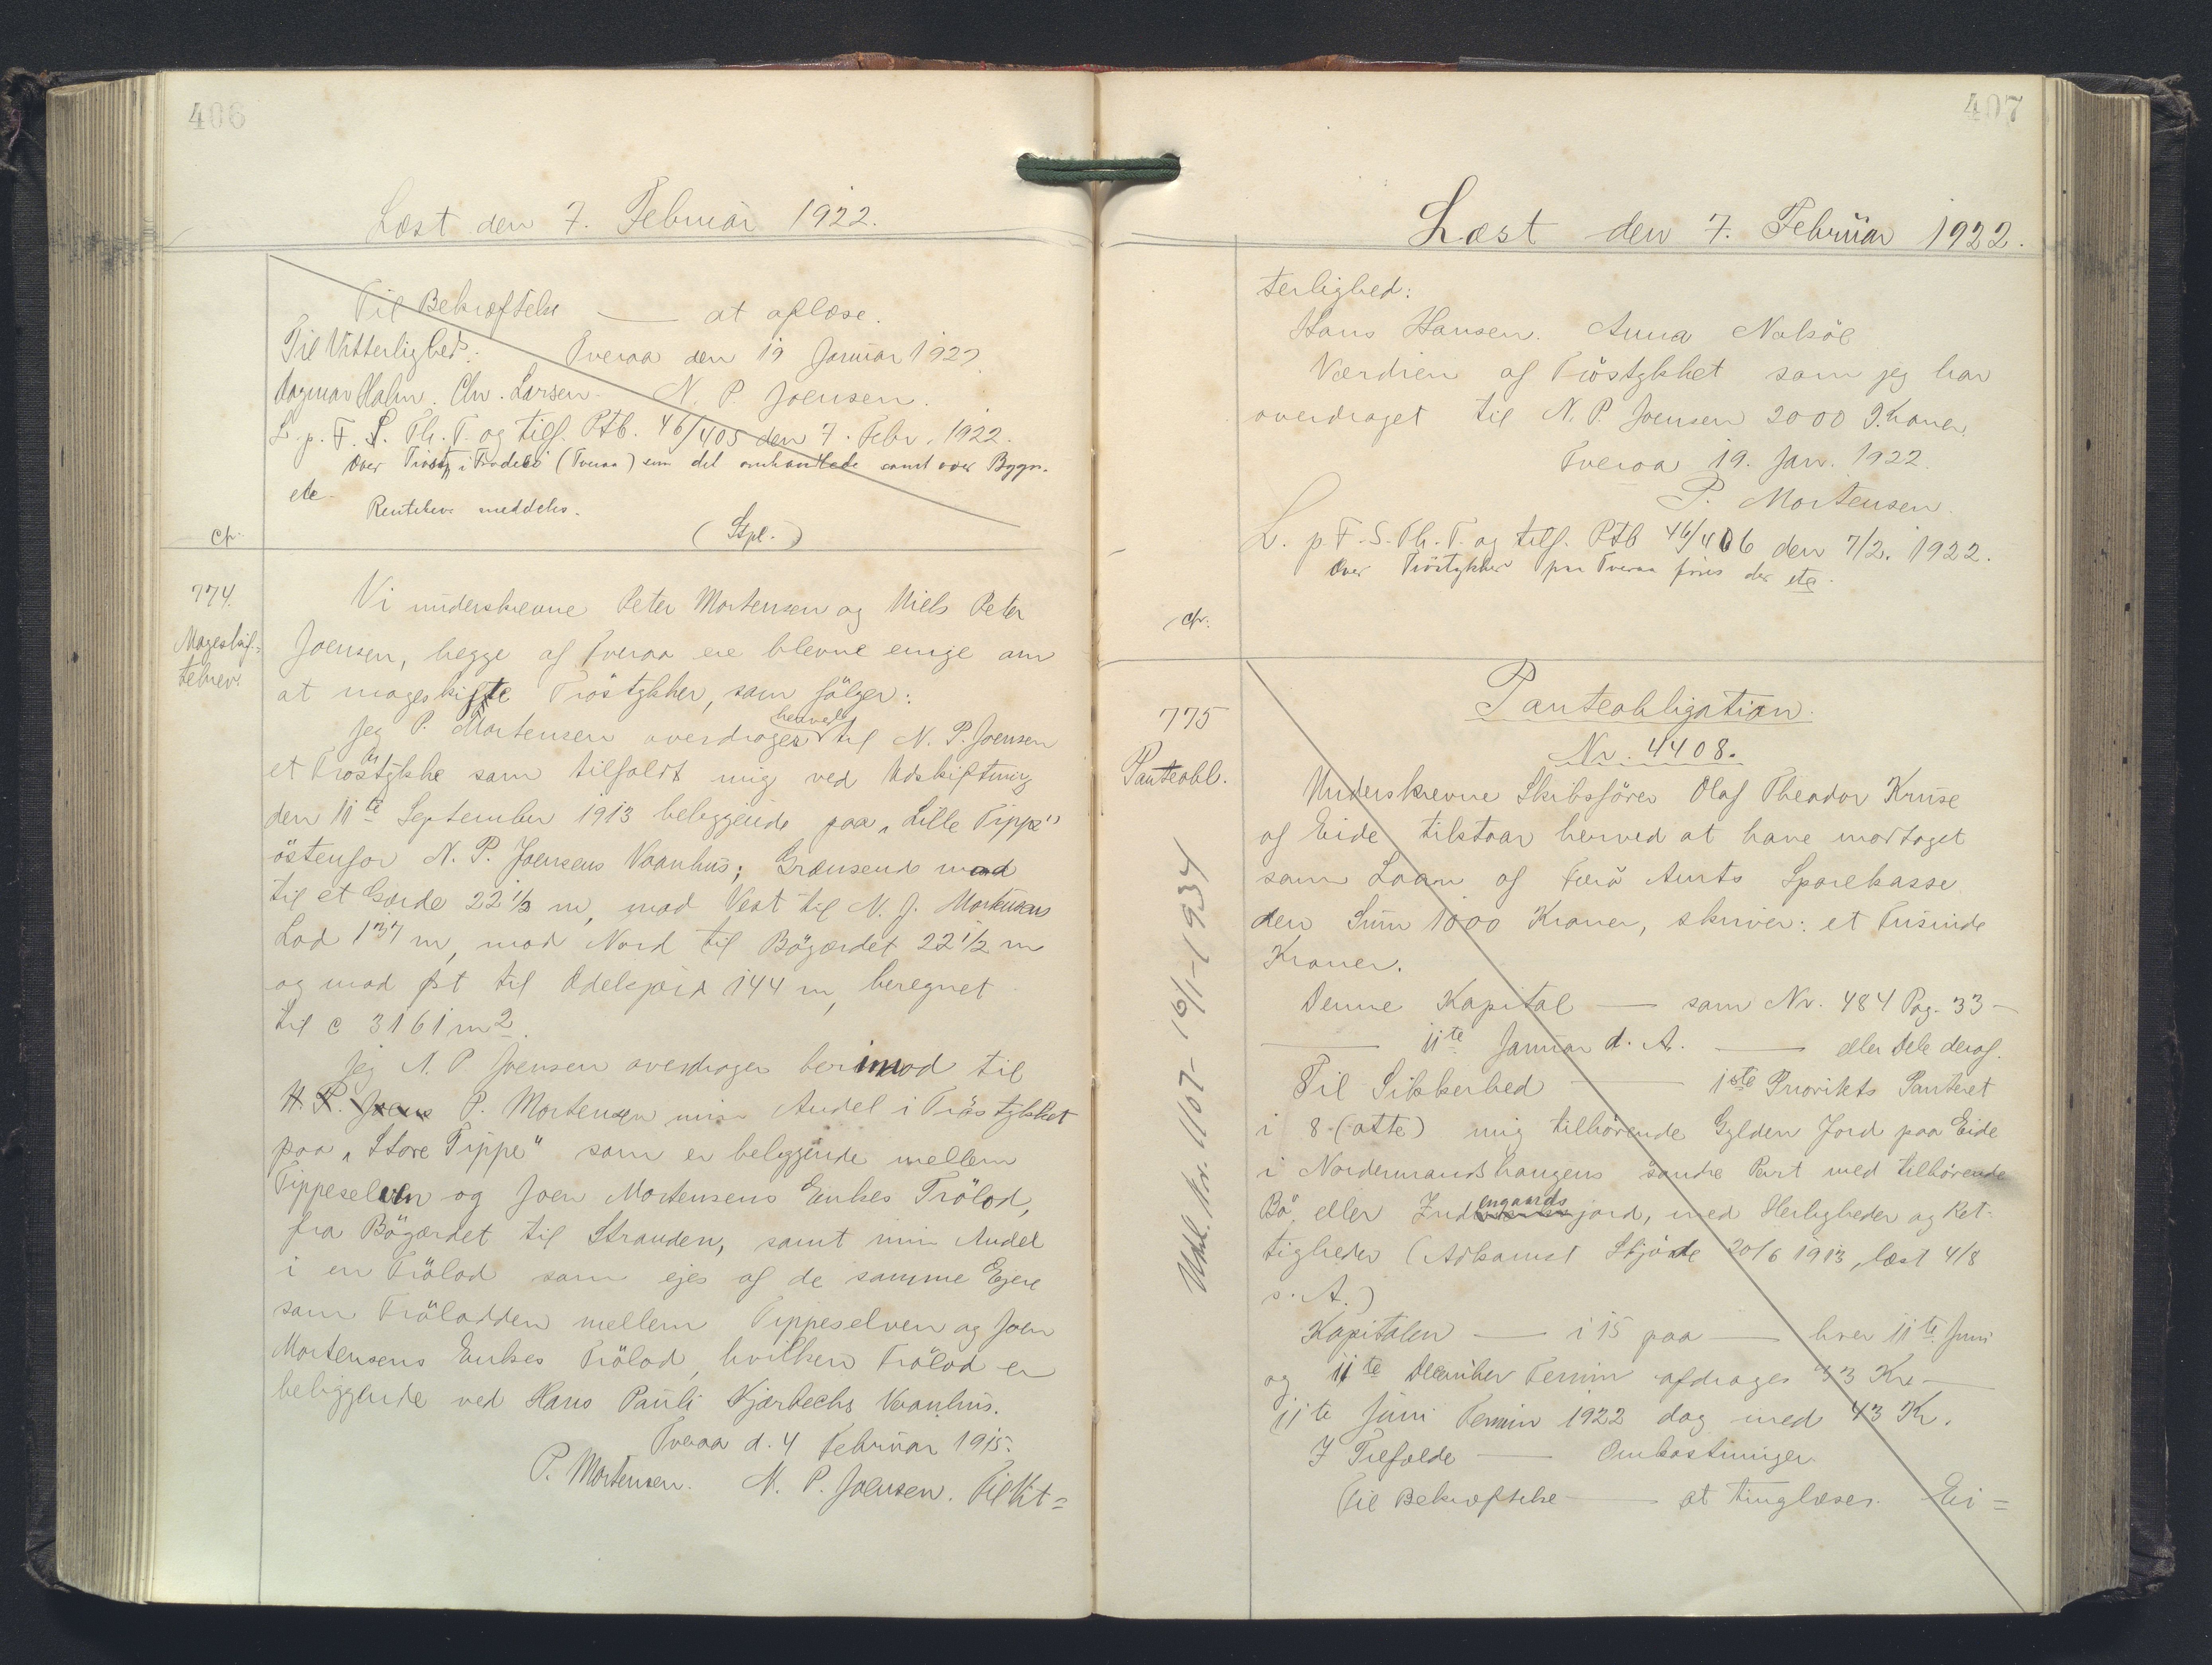 406
Læst den 7. Februar 1922.
Til Bekræftelse — at aflæse.
Til Vitterlighed: Tveraa den 19 Januar 1922
Dagmar Holm. Chr. Larsen. N. P. Joensen.
L. p. F. S. Th. T. og tilf. Ptb. 46/405 den 7. Febr. 1922.
Over Tröst. i Trodelsö (Tveraa) som det omhandlede samt over Bygn.
etc.
meddeles.
(Stpl.)
cfr.
774.
Mageskif-
tebrev.
Vi underskrevne Peter Mortensen og Niels Peter
Joensen, begge af Tveraa ere blevne enige om
at mageskifte Tröstykker, som fölger:
Jeg P. Mortensen overdrager herved til N. P. Joensen
et Tröstykke som tilfaldt mig ved Udskiftning
den 11te September 1913 beliggende paa „Lille Tippe"
östenfor N. P. Joensens Vaanhus; Grænsende mod
til et Gærde 22 1/2 m, mod Vest til N. J. Mortensens
Lod 137 m, mod Nord til Bögærdet 22 1/2 m
og mod Øst til Odelsjord 144 m, beregnet
til c 3161 m2.
Jeg N. P Joensen overdrager herimod til
N. P. Joens P. Mortensen min Andel i Tröstykket
paa „Store Tippe" som er beliggende mellem
Tippeselven og Joen Mortensens Enkes Trölod,
fra Bögærdet til Stranden, samt min Andel
i en Trölod som ejes af de samme Ejere
som Trölodden mellem Tippeselven og Joen
Mortensens Enkes Trölod, hvilken Trölod er
beliggende ved Hans Pauli Kjærbechs Vaanhus.
Tveraa d. 4 Februar 1915.
P. Mortensen. N. P. Joensen. Til Vit=
407
Læst den 7. Februar 1922.
terlighed:
Hans Hansen. Anna Nolsöe
Værdien af Tröstykket som jeg har
overdraget til N. P. Joensen 2000 Kroner.
Tveraa 19. Jan. 1922.
P. Mortensen.
L. p. F. S. Th. T. og tilf. Ptb 46/406 den 7/2. 1922.
Over Tröstykker paa Tveraa föies der etc.
cfr.
775
Panteobl.
Udsl. Nr. 1107- 16/1-1934
Panteobligation.
Nr. 4408.
Underskrevne Skibsförer Olaf Theodor Kruse
af Eide tilstaar herved at have modtaget
som Laan af Færö Amts Sparekasse
den Sum 1000 Kroner, skriver: et Tusinde
Kroner.
Denne Kapital — som Nr. 484 Pag. 33 —
— 11te Januar d. A. — eller Dele deraf.
Til Sikkerhed — 1ste Prioritets Panteret
i 8 (otte) mig tilhörende Gylden Jord paa Eide
i Nordermandshaugens söndre Part med tilhörende
Bö eller Indengaardsjord, med Herligheder og Ret-
tigheder (Adkomst Skjöde 20/6 1913, læst 4/8
s. A.)
Kapitalen — i 15 paa — hver 11te Juni
og 11te December Termin afdrages 33 Kr —
11te Juni Termin 1922 dog med 43 Kr.
I Tilfælde — Omkostninger.
Til Bekræftelse — at tinglæses. Ei=